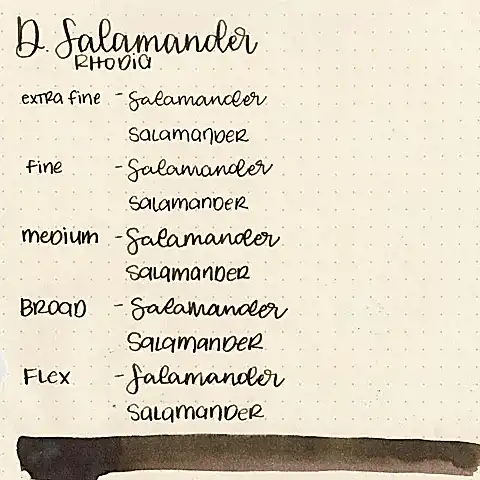 D. Salamander
RHODIA
extra fine - Salamander
SALAMANDER
fine - Salamander
SALAMANDER
medium - Salamander
SALAMANDER
BROAD - Salamander
SALAMANDER
FLEX - Salamander
SALAMANDER